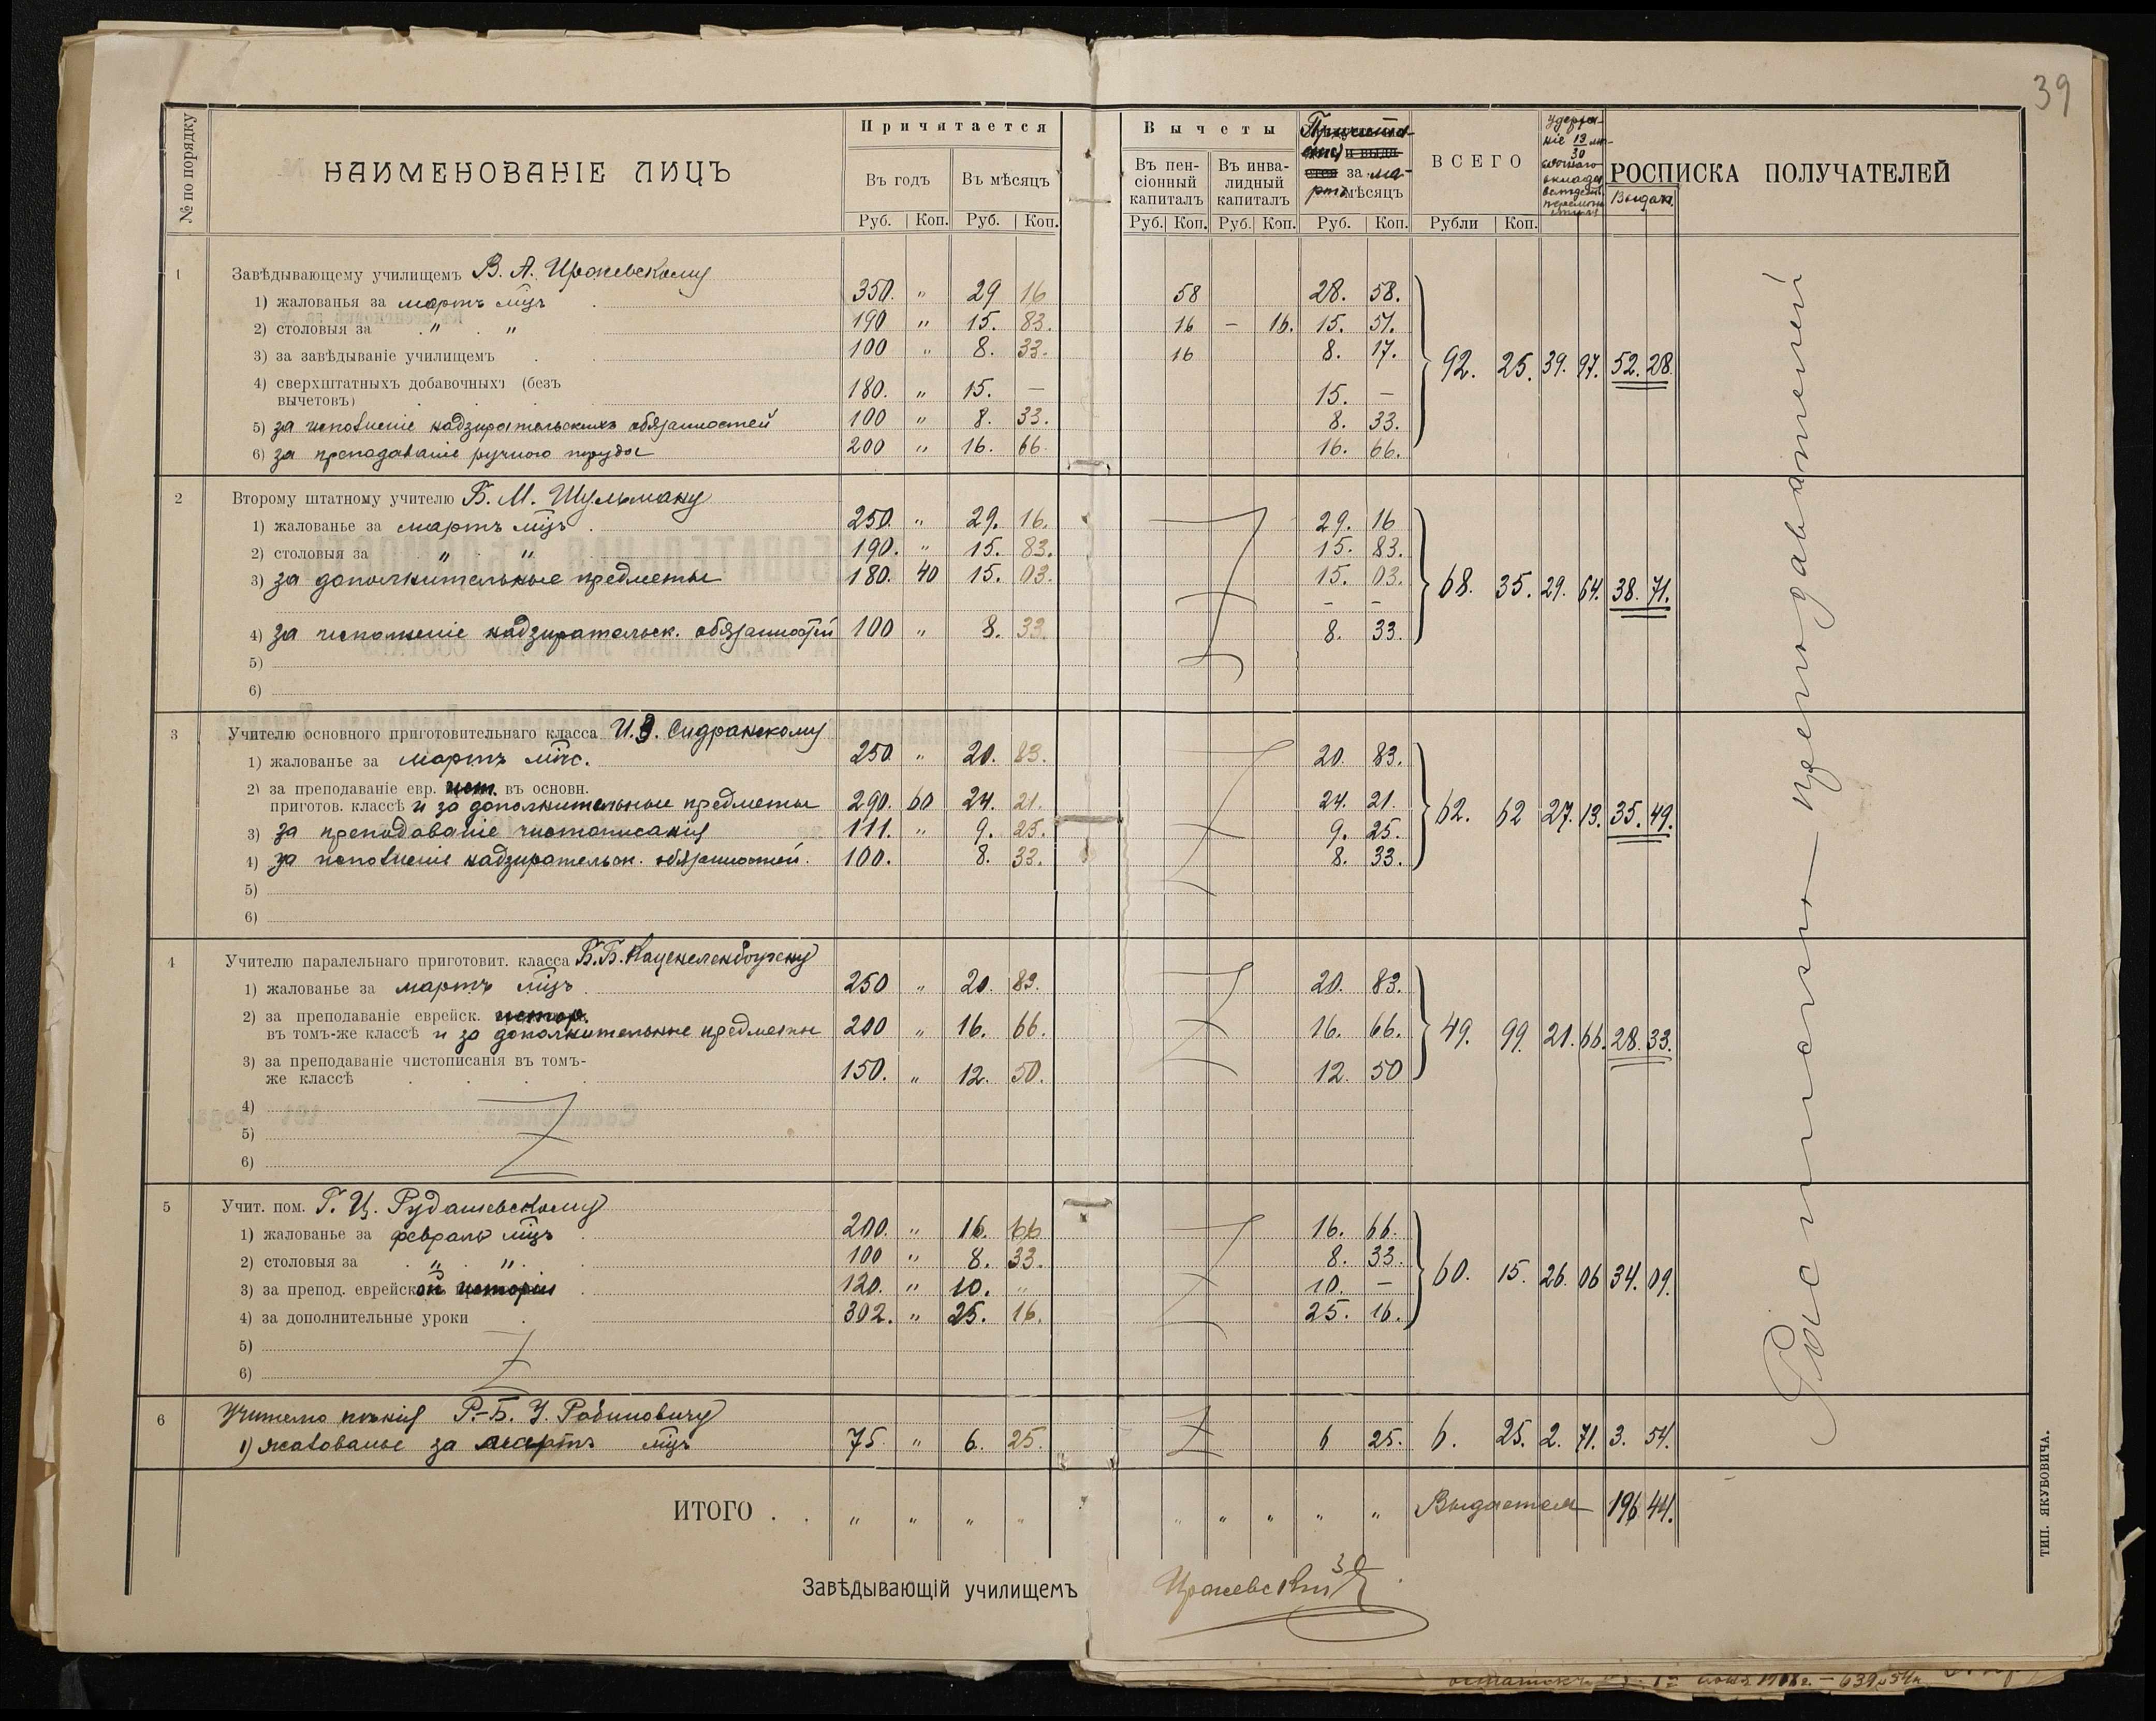 39
№ по порядку
НАИМЕНОВАНІЕ ЛИЦЪ
Причитается
Въ годъ
Въ мѣсяцъ
Руб. Коп. Руб. Коп.
Вычеты
Въ пен-
сіонный
капиталъ
Въ инва-
лидный
капиталъ
за ма-
ртъ мѣсяцъ
ВСЕГО
Удержа-
ніе 13
30
Выдач.
РОСПИСКА ПОЛУЧАТЕЛЕЙ
Руб. Коп. Руб. Коп. Руб. Коп. Рубли Коп.
1 Завѣдывающему училищемъ В. А. Ирожевскому
1) жалованья за мартъ мцъ 350. " 29 16 58 28. 58.
2) столовыя за " " 190 " 15. 83. 16 – 16. 15. 51.
3) за завѣдываніе училищемъ 100 " 8. 33. 16 8. 17. 92. 25. 39. 97. 52. 28.
4) сверхштатныхъ добавочныхъ (безъ
вычетовъ) 180. " 15. — 15. –
5) за исполненіе надзирательскихъ обязанностей 100 " 8. 33. 8. 33.
6) за преподаваніе ручного труда 200 " 16. 66. 16. 66.
2 Второму штатному учителю Б. М. Шульману
1) жалованье за мартъ мцъ 250. " 29. 16. 29. 16
2) столовыя за " " 190. " 15. 83. 15. 83.
3) за дополнительные предметы 180. 40 15. 03. 15. 03. 68. 35. 29. 64. 38. 71.
– –
4) за исполненіе надзирательск. обязанностей 100 " 8. 33. 8. 33.
5)
6)
3 Учителю основного приготовительнаго класса И.З. Сидранскому
1) жалованье за мартъ мцс. 250 " 20. 83. 20. 83.
2) за преподаваніе евр. ист. въ основн.
приготов. классѣ и за дополнительные предметы 290. 60 24. 21. 24. 21. 62. 62 27. 13. 35. 49.
3) за преподаваніе чистописанія 111. " 9. 25. 9. 25.
4) за исполненіе надзирательск. обязанностей. 100. 8. 33. 8. 33.
5)
6)
4 Учителю паралельнаго приготовит. класса Б.Б. Каценеленбогену
1) жалованье за мартъ мцъ 250 " 20. 83. 20. 83.
2) за преподаваніе еврейск. истор.
въ томъ-же классѣ и за дополнительные предметы 200 " 16. 66. 16. 66. 49. 99. 21. 66. 28. 33.
3) за преподаваніе чистописанія въ томъ-
же классѣ 150. " 12. 50. 12. 50
4)
5)
6)
5 Учит. пом. Г. Ц. Рудашевскому
1) жалованье за февраль мцъ 200. " 16. 66 16. 66.
2) столовыя за " " 100 " 8. 33. 8. 33.
3) за препод. еврейской исторіи 120. " 10. " 10. – 60. 15. 26. 06 34. 09.
4) за дополнительные уроки 302. " 25. 16. 25. 16.
5)
6)
6 Учителю пѣнія Р.-Б. У. Рабиновичу
1) жалованье за мартъ мцъ 75. " 6. 25. 6 25. 6. 25. 2. 71. 3. 54.
ИТОГО . . " " " " " " " " " Выдается 196 44.
Завѣдывающій училищемъ Ирожевскій
Расписано преподавателей
ТИП. ЯКУБОВИЧА.